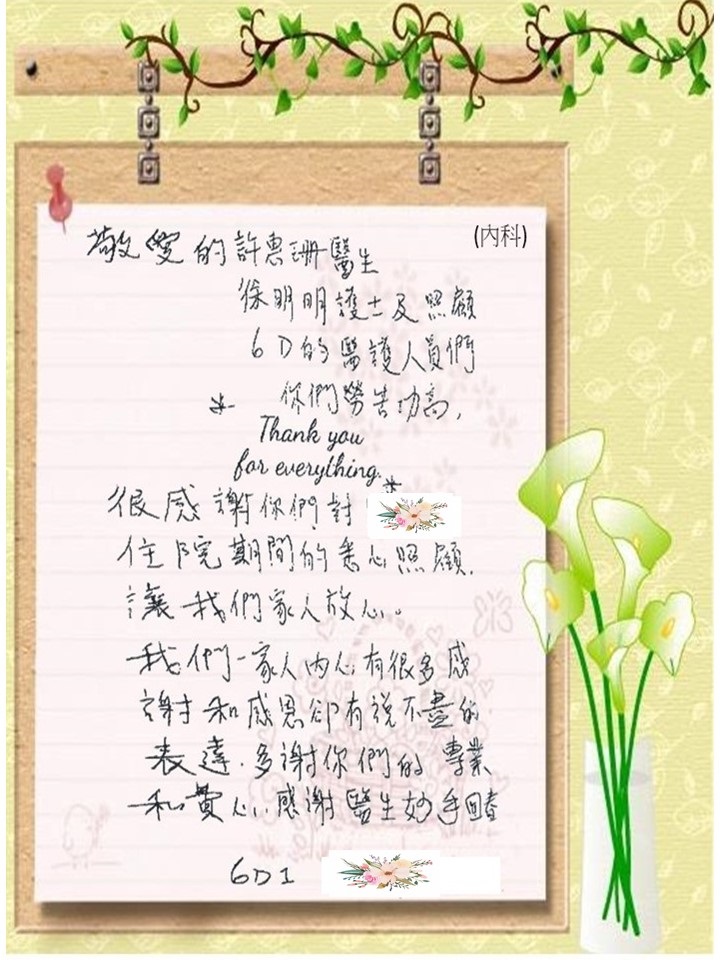 (內科)
敬愛的許惠珊醫生
徐明明護士及照顧
6D的醫護人員們
* 你們勞苦功高,
Thank you
for everything.*
很感謝你們對
住院期間的悉心照顧.
讓我們家人放心。
我們一家人內心有很多感
謝和感恩卻有說不盡的
表達.多謝你們的專業
和費心.感謝醫生妙手回春
6D1